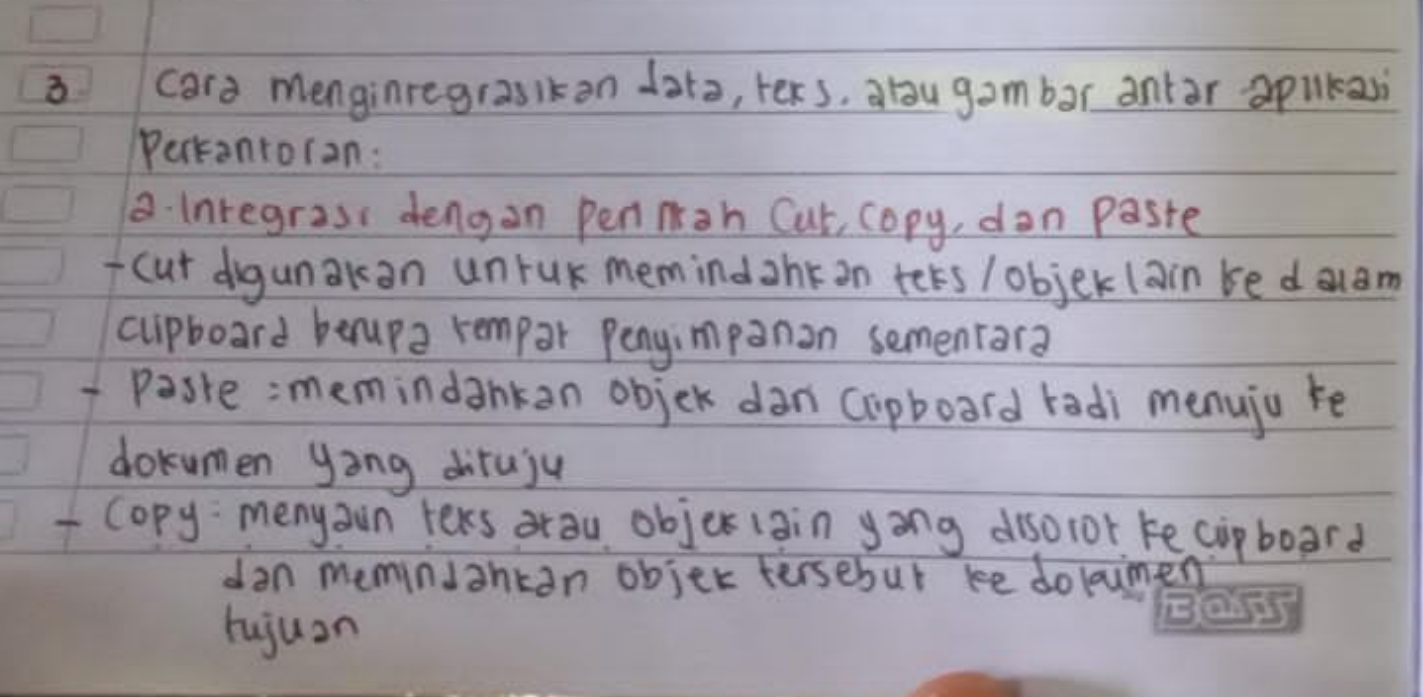 3 Cara menginregrasikan data, teks. atau gambar antar aplikasi
Perkantoran:
a. Integrasi dengan perintah Cut, Copy, dan Paste
- Cut digunakan untuk memindahkan teks/objek lain ke dalam
clipboard berupa tempat penyimpanan sementara
- Paste : memindahkan objek dari Clipboard tadi menuju ke
dokumen yang dituju
- Copy : menyalin teks atau objek lain yang disorot ke clipboard
dan memindahkan objek tersebut ke dokumen
tujuan
BOSS